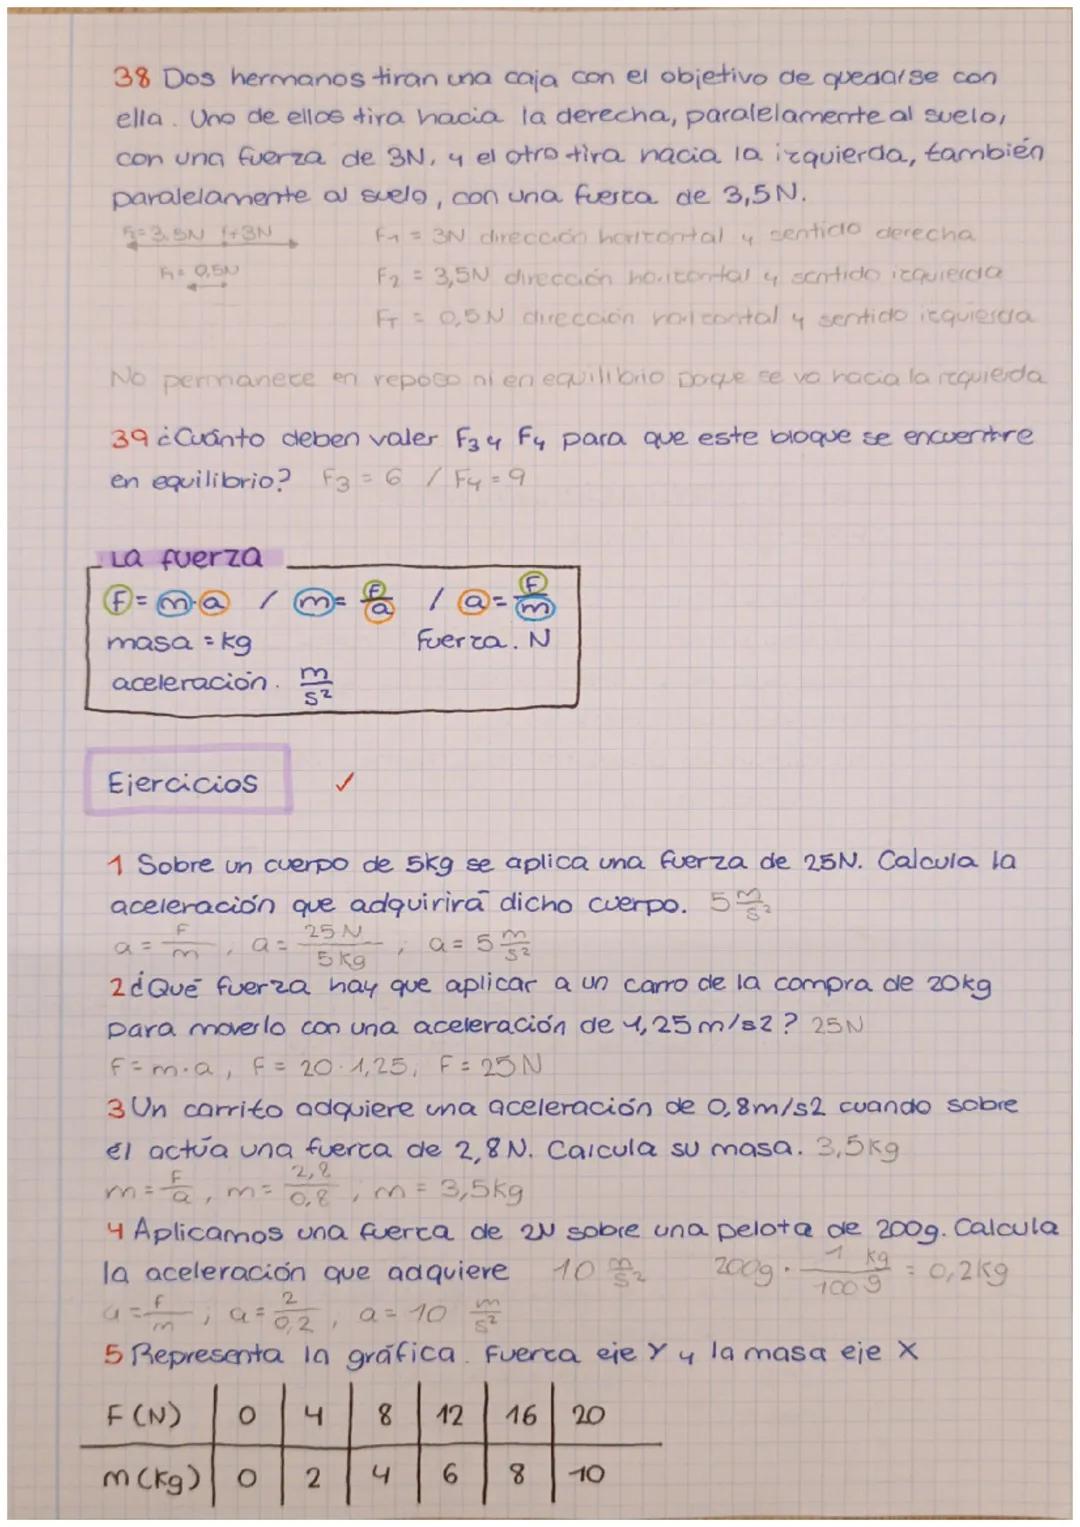 38 Dos hermanos tiran una caja con el objetivo de quedarse con
ella. Uno de ellos tira hacia la derecha, paralelamente al suelo,
con una fuerza de 3N, y el otro tira hacia la izquierda, también
paralelamente al suelo, con una fuerca de 3,5N.
F2=3,5N F1=3N F1 = 3N dirección horizontal y sentido derecha
0,5N F2 = 3,5N dirección horizontal y sentido izquierda
FT = 0,5N dirección horizontal y sentido izquierda
No permanece en reposo ni en equilibrio poque se va hacia la izquierda
39 ¿Cuánto deben valer F3 y F4 para que este bloque se encuentre
en equilibrio? F3 = 6 / F4 = 9
La fuerza
F = m·a / m = F/a / a = F/m
masa = kg fuerza. N
aceleración. m/s²
Ejercicios ✓
1 Sobre un cuerpo de 5kg se aplica una fuerza de 25N. Calcula la
aceleración que adquirirá dicho cuerpo. 5 m/s²
a = F/m, a = 25 N/5 kg, a = 5 m/s²
2 ¿Qué fuerza hay que aplicar a un carro de la compra de 20kg
para moverlo con una aceleración de 1,25m/s2? 25N
F = m·a, F = 20·1,25, F = 25N
3 Un carrito adquiere una aceleración de 0,8m/s2 cuando sobre
él actúa una fuerca de 2,8N. Calcula su masa. 3,5kg
m = F/a, m = 2,8/0,8, m = 3,5kg
4 Aplicamos una fuerca de 2N sobre una pelota de 200g. Calcula
la aceleración que adquiere 10 m/s² 200g · 1 kg/100 g = 0,2kg
a = F/m, a = 2/0,2, a = 10 m/s²
5 Representa la gráfica. Fuerca eje Y y la masa eje X
F (N) 0 4 8 12 16 20
m (kg) 0 2 4 6 8 10